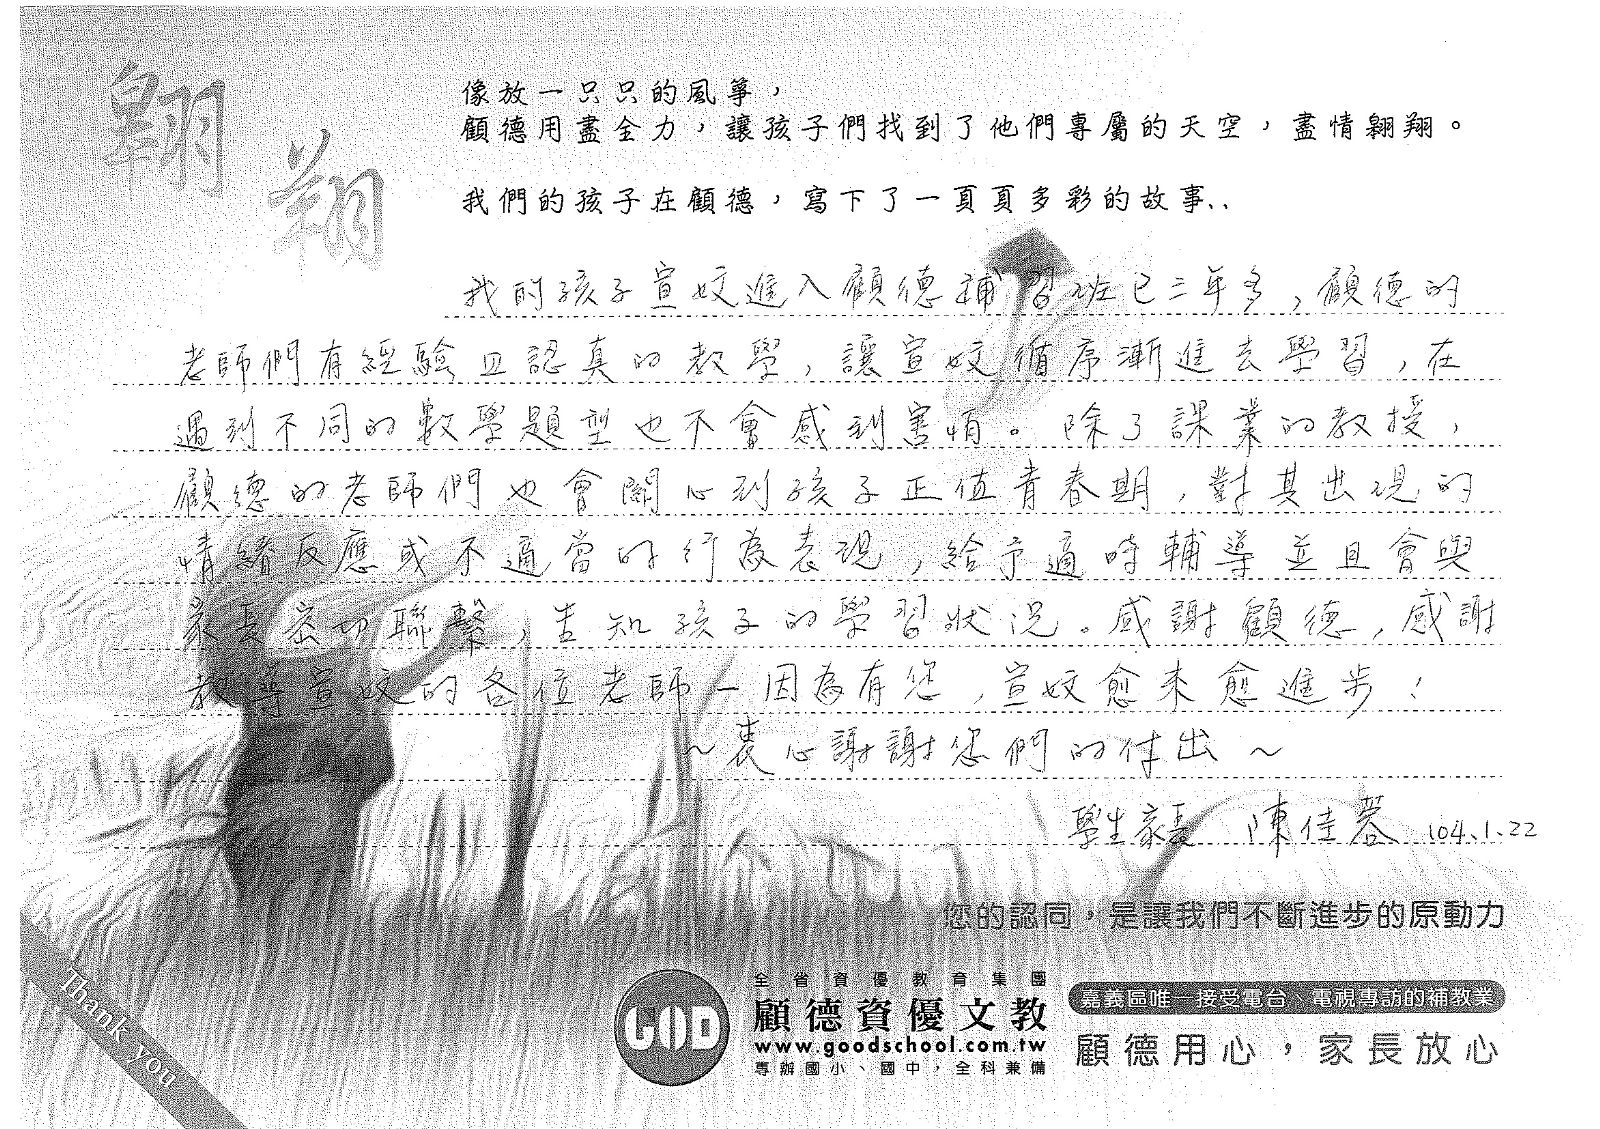 翱翔
像放一只只的風箏，
顧德用盡全力，讓孩子們找到了他們專屬的天空，盡情翱翔。
我們的孩子在顧德，寫下了一頁頁多彩的故事..
我的孩子宣妏進入顧德補習班已三年多，顧德的
老師們有經驗且認真的教學，讓宣妏循序漸進去學習，在
遇到不同的數學題型也不會感到害怕。除了課業的教授，
顧德的老師們也會關心到孩子正值青春期，對其出現的
情緒反應或不適當的行為表現，給予適時輔導並且會與
家長密切聯繫，告知孩子的學習狀況。感謝顧德，感謝
教導宣妏的各位老師－因為有您，宣妏愈來愈進步！
～衷心謝謝您們的付出～
學生家長 陳佳蓉 104.1.22
您的認同，是讓我們不斷進步的原動力
Thank you
GOD
全省資優教育集團
顧德資優文教
www.goodschool.com.tw
專辦國小、國中，全科兼備
嘉義區唯一接受電台、電視專訪的補教業
顧德用心，家長放心